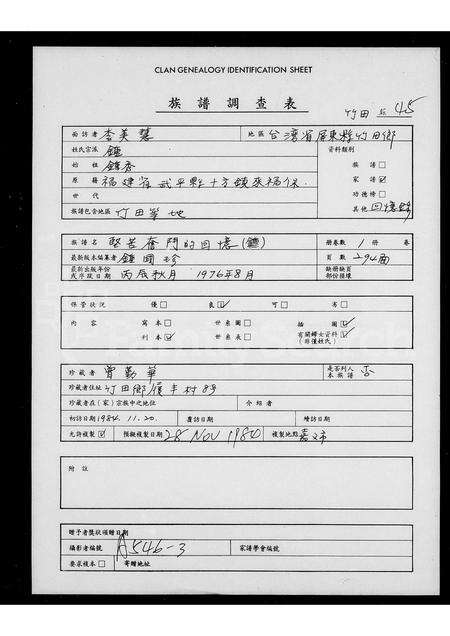 CLAN GENEALOGY IDENTIFICATION SHEET
族譜調查表
竹田 45
面訪者 李美慧 地區 台灣省屏東縣竹田鄉
姓氏宗派 鍾 資料類別
始祖 族譜□
原籍 福建省武平縣 家譜☑
世代 功德榜□
族譜包含地區 竹田等地 其他 回憶錄
族譜名 堅苦奮鬥的回憶(鍾) 冊卷數 1 冊 卷
最新版本編纂者 鍾國珍 頁數 294面
最新出版年份或序跋日期 丙辰秋月 1976年8月 缺冊缺頁部份損壞
保管狀況 優□ 良☑ 可□ 劣□
內容 寫本□ 世系圖□ 插圖☑
刊本☑ 世系表□ 有關婦女資料☑(非僅姓氏)
珍藏者 曾勤華 是否列入本族譜 否
珍藏者住址 竹田鄉履丰村83
珍藏者在(家)宗族中之地位 介紹者
初訪日期 1984.11.20. 覆訪日期 續訪日期
允許複製☑ 預擬複製日期 28 Nov 1984 複製地點 嘉義市
附註
贈予者獎狀頒贈日期
攝影者編號 A546-3 家譜學會編號
要求複本□ 寄贈地址